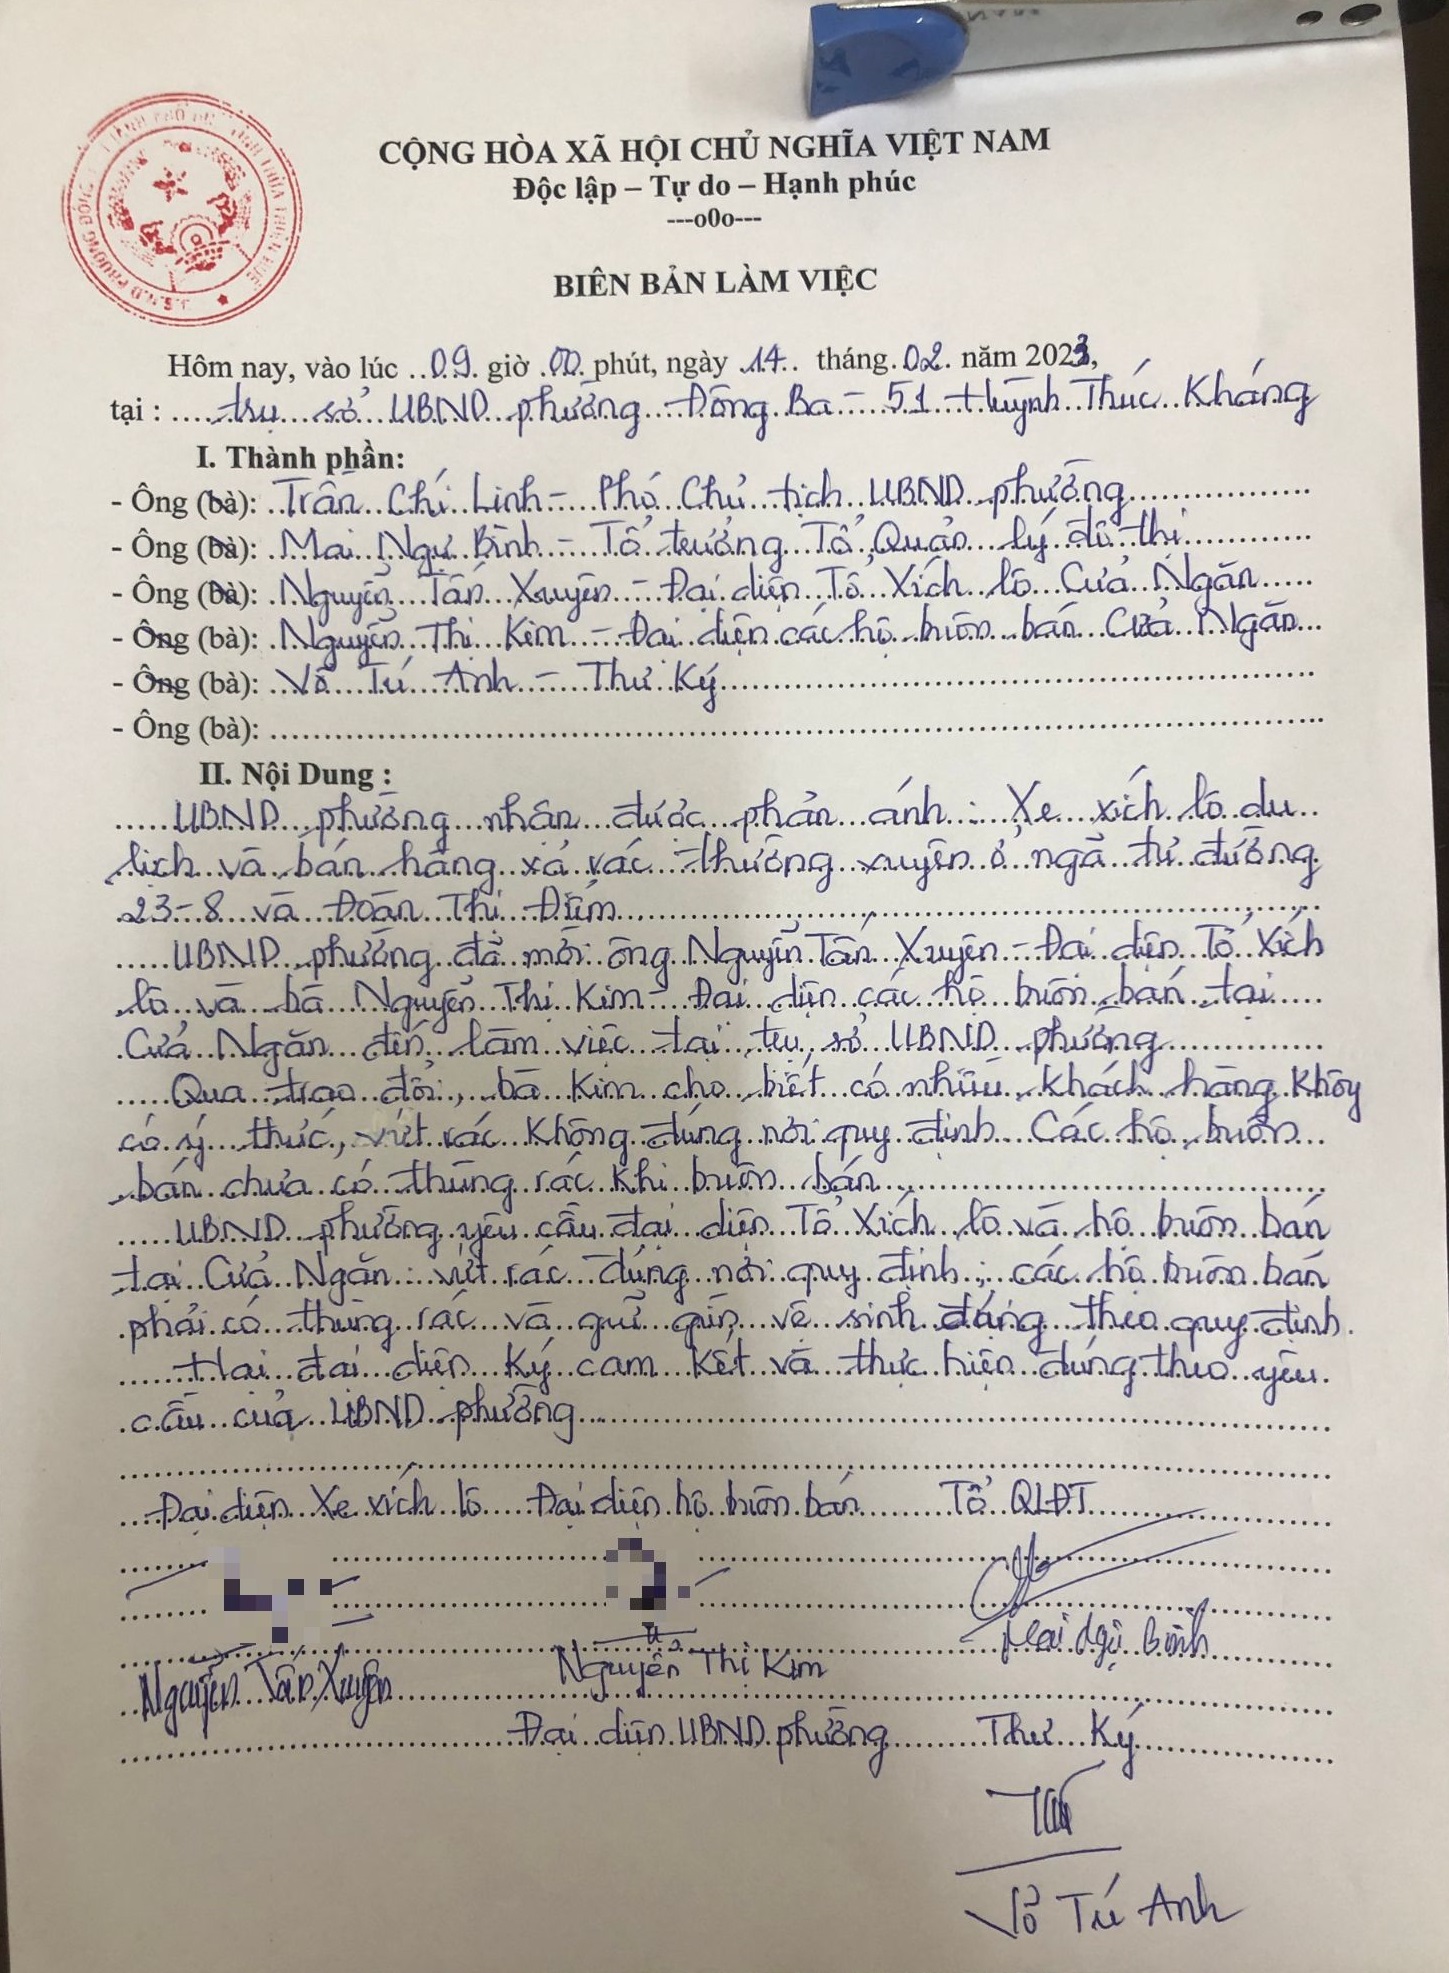 CỘNG HÒA XÃ HỘI CHỦ NGHĨA VIỆT NAM
Độc lập – Tự do – Hạnh phúc
---o0o---
BIÊN BẢN LÀM VIỆC
Hôm nay, vào lúc ..09. giờ .00. phút, ngày .14.. tháng.02. năm 2023,
tại : ....trụ sở UBND phường Đông Ba - 51 Huỳnh Thúc Kháng
I. Thành phần:
- Ông (bà): Trần Chí Linh - Phó Chủ tịch UBND phường
- Ông (bà): Mai Ngự Bình - Tổ trưởng Tổ Quản lý đô thị
- Ông (bà): Nguyễn Tấn Xuyên - Đại diện Tổ Xích lô Cửa Ngăn
- Ông (bà): Nguyễn Thị Kim - Đại diện các hộ buôn bán Cửa Ngăn
- Ông (bà): Võ Tú Anh - Thư Ký
- Ông (bà):
II. Nội Dung :
UBND phường nhận được phản ánh : Xe xích lô du
lịch và bán hàng xả rác thường xuyên ở ngã tư đường
23-8 và Đoàn Thị Điểm
UBND phường đã mời ông Nguyễn Tấn Xuyên - Đại diện Tổ Xích
lô và bà Nguyễn Thị Kim - Đại diện các hộ buôn bán tại
Cửa Ngăn đến làm việc tại trụ sở UBND phường
Qua trao đổi, bà Kim cho biết có nhiều khách hàng không
có ý thức, vứt rác không đúng nơi quy định. Các hộ buôn
bán chưa có thùng rác khi buôn bán.
UBND phường yêu cầu đại diện Tổ Xích lô và hộ buôn bán
tại Cửa Ngăn : vứt rác đúng nơi quy định ; các hộ buôn bán
phải có thùng rác và giữ gìn vệ sinh đúng theo quy định.
Hai đại diện ký cam kết và thực hiện đúng theo yêu
cầu của UBND phường
Đại diện Xe xích lô Đại diện hộ buôn bán Tổ QLĐT
Mai Ngự Bình
Nguyễn Tấn Xuyên Nguyễn Thị Kim
Đại diện UBND phường Thư Ký
Võ Tú Anh